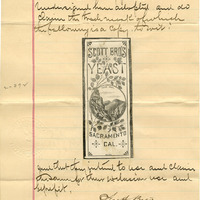 undersigned have adopted and do
design the trade mark of which
the following is a Copy, to wit:
SCOTT BROS
YEAST
SACRAMENTO
CAL
and that they intend to use and claim
the same for their exclusive use and
benefit.